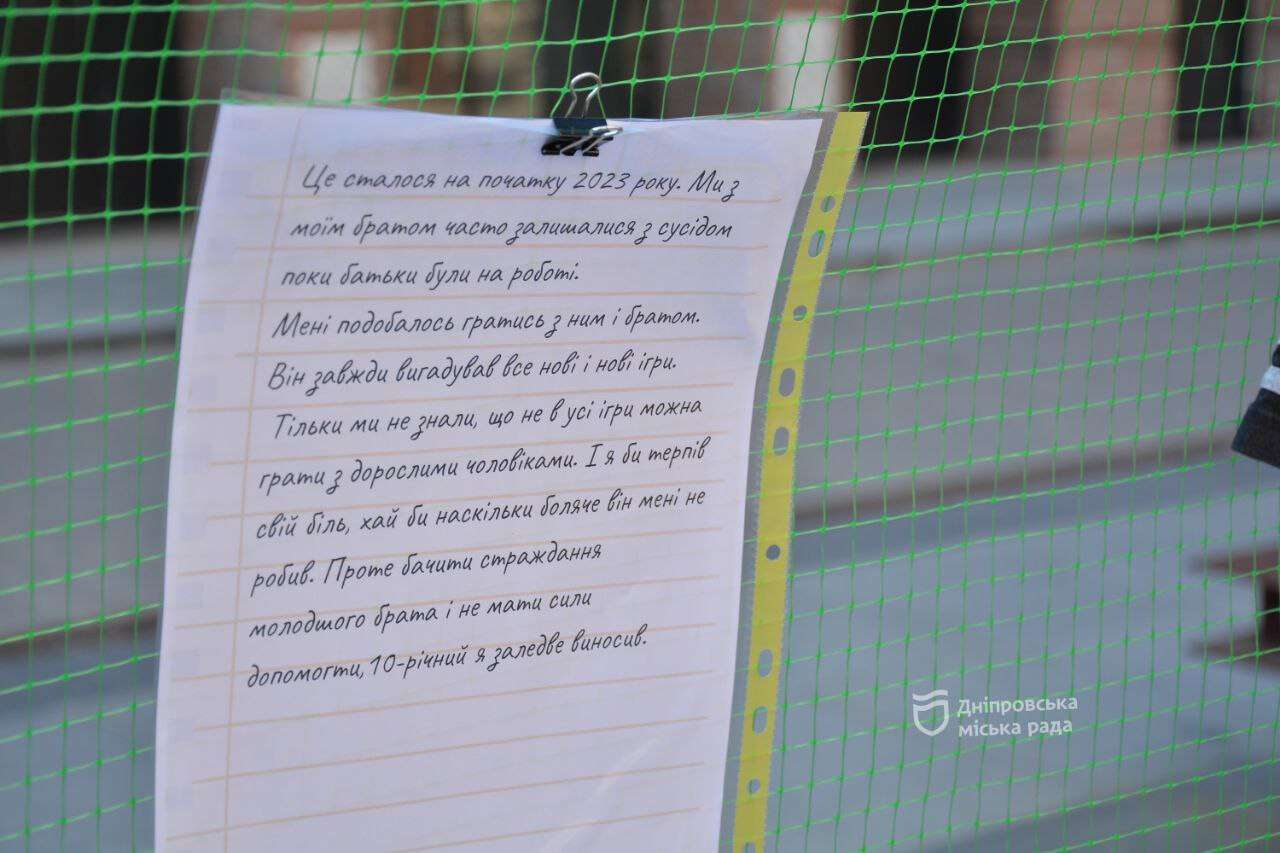 Це сталося на початку 2023 року. Ми з
моїм братом часто залишалися з сусідом
поки батьки були на роботі.
Мені подобалось гратись з ним і братом.
Він завжди вигадував все нові і нові ігри.
Тільки ми не знали, що не в усі ігри можна
грати з дорослими чоловіками. І я би терпів
свій біль, хай би наскільки боляче він мені не
робив. Проте бачити страждання
молодшого брата і не мати сили
допомогти, 10-річний я заледве виносив.
Дніпровська
міська рада